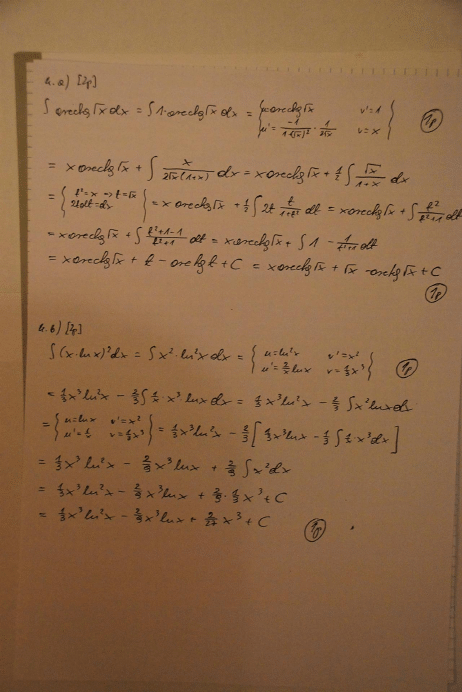 4. a) [2p]
∫ arcctg√x dx = ∫ 1·arcctg√x dx = { arcctg√x v'=1
u'= -1/(1+(√x)²) · 1/(2√x) v=x } 1p
= x arcctg√x + ∫ x/(2√x(1+x)) dx = x arcctg√x + 1/2 ∫ √x/(1+x) dx
= { t²=x → t=√x
2tdt=dx } = x arcctg√x + 1/2 ∫ 2t t/(1+t²) dt = x arcctg√x + ∫ t²/(t²+1) dt
= x arcctg√x + ∫ (t²+1-1)/(t²+1) dt = x arcctg√x + ∫ 1 - 1/(t²+1) dt
= x arcctg√x + t - arctg t + C = x arcctg√x + √x - arctg√x + C
1p
4. b) [2p]
∫(x·lnx)²dx = ∫x²·ln²x dx = { u=ln²x v'=x²
u'=2/x lnx v=1/3x³ } 1p
= 1/3x³ln²x - 2/3∫1/x·x³ lnx dx = 1/3x³ln²x - 2/3 ∫x²lnx dx
= { u=lnx v'=x²
u'=1/x v=1/3x³ } = 1/3x³ln²x - 2/3[1/3x³lnx - 1/3∫1/x·x³dx]
= 1/3x³ln²x - 2/9x³lnx + 2/9∫x²dx
= 1/3x³ln²x - 2/9x³lnx + 2/9·1/3x³ + C
= 1/3x³ln²x - 2/9x³lnx + 2/27x³ + C
1p